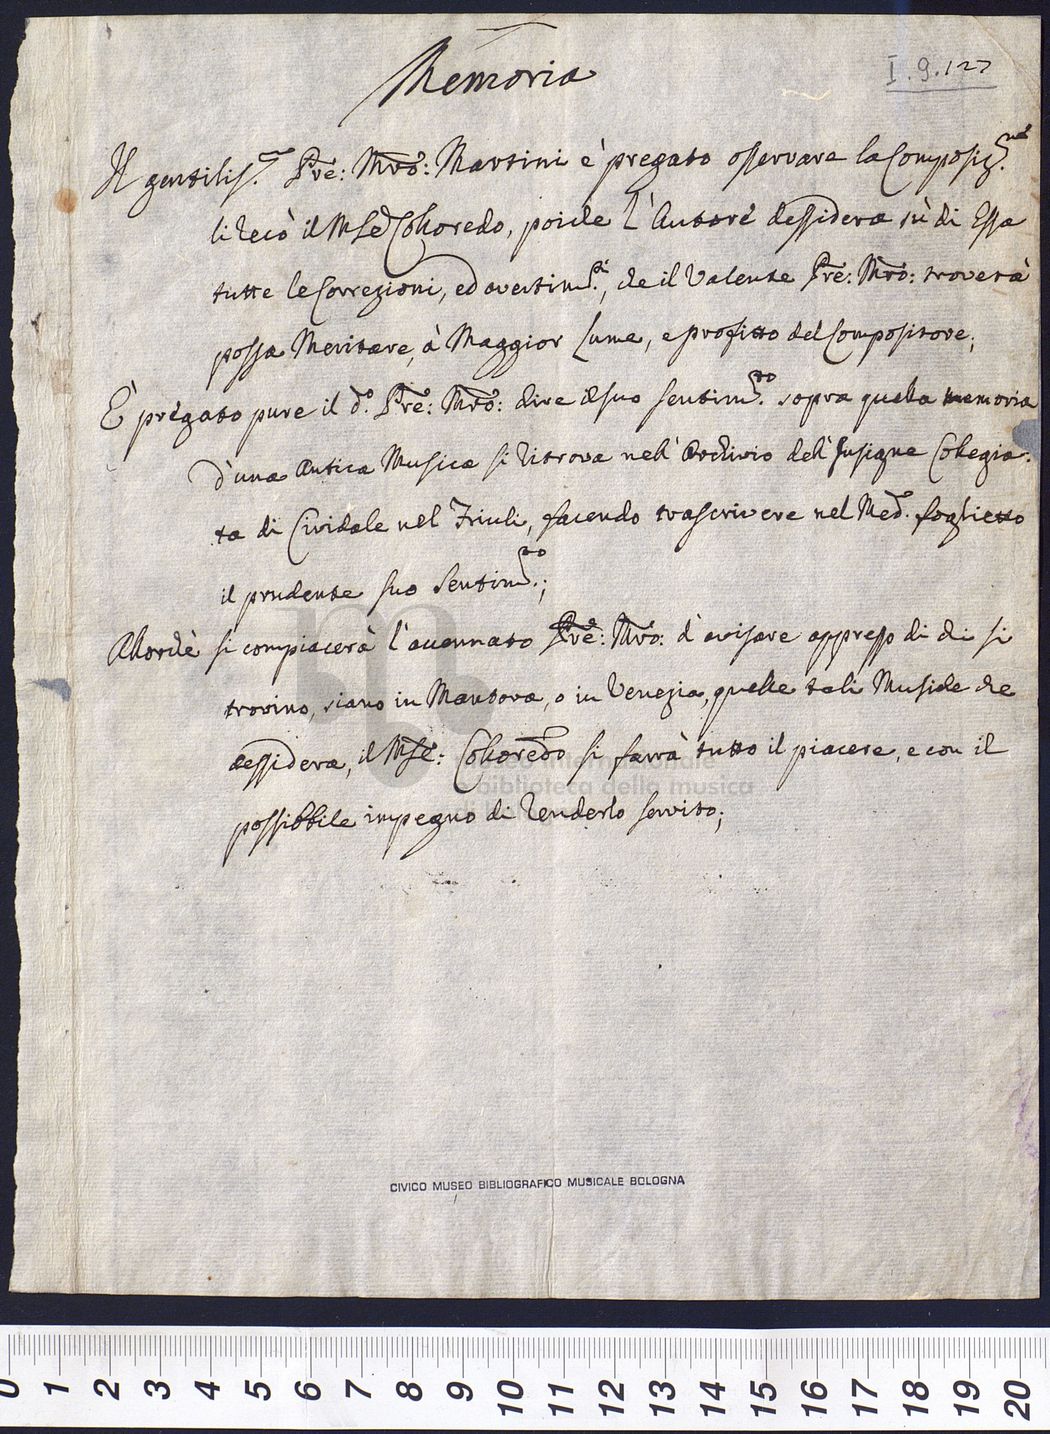 Memoria
I. 9. 127
Il gentilis.mo Pre: Mro: Martini è pregato osservare la Composiz.ne
li recò il Mse Colloredo, poiche l'Autore dessidera sù di Essa
tutte le Correzioni, ed avertim.ti, che il Valente Pre: Mro: troverà
possa Meritare, à Maggior Lume, e profitto del Compositore;
È pregato pure il d.o Pre: Mro: dire il suo sentim.to sopra quella memoria
d'una Antica Musica si ritrova nell'Archivio dell'Insigne Collegia-
ta di Cividale nel Friuli, facendo trascrivere nel Med.o foglietto
il prudente suo Sentim.to;
Allorchè si compiacerà l'accennato Pre: Mro: d'avisare appresso di chi si
trovino, siano in Mantova, o in Venezia, quelle tali Musiche che
dessidera, il Mse: Colloredo si farrà tutto il piacere, e con il
possibbile impegno di renderlo servito;
biblioteca della musica
CIVICO MUSEO BIBLIOGRAFICO MUSICALE BOLOGNA
0 1 2 3 4 5 6 7 8 9 10 11 12 13 14 15 16 17 18 19 20